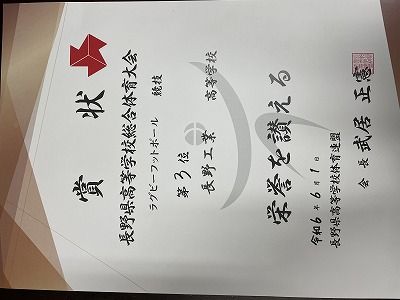 賞状
長野県高等学校総合体育大会
ラグビーフットボール 競技
第3位
長野工業 高等学校
栄誉を讃える
令和6年6月1日
長野県高等学校体育連盟
会長 武居正憲